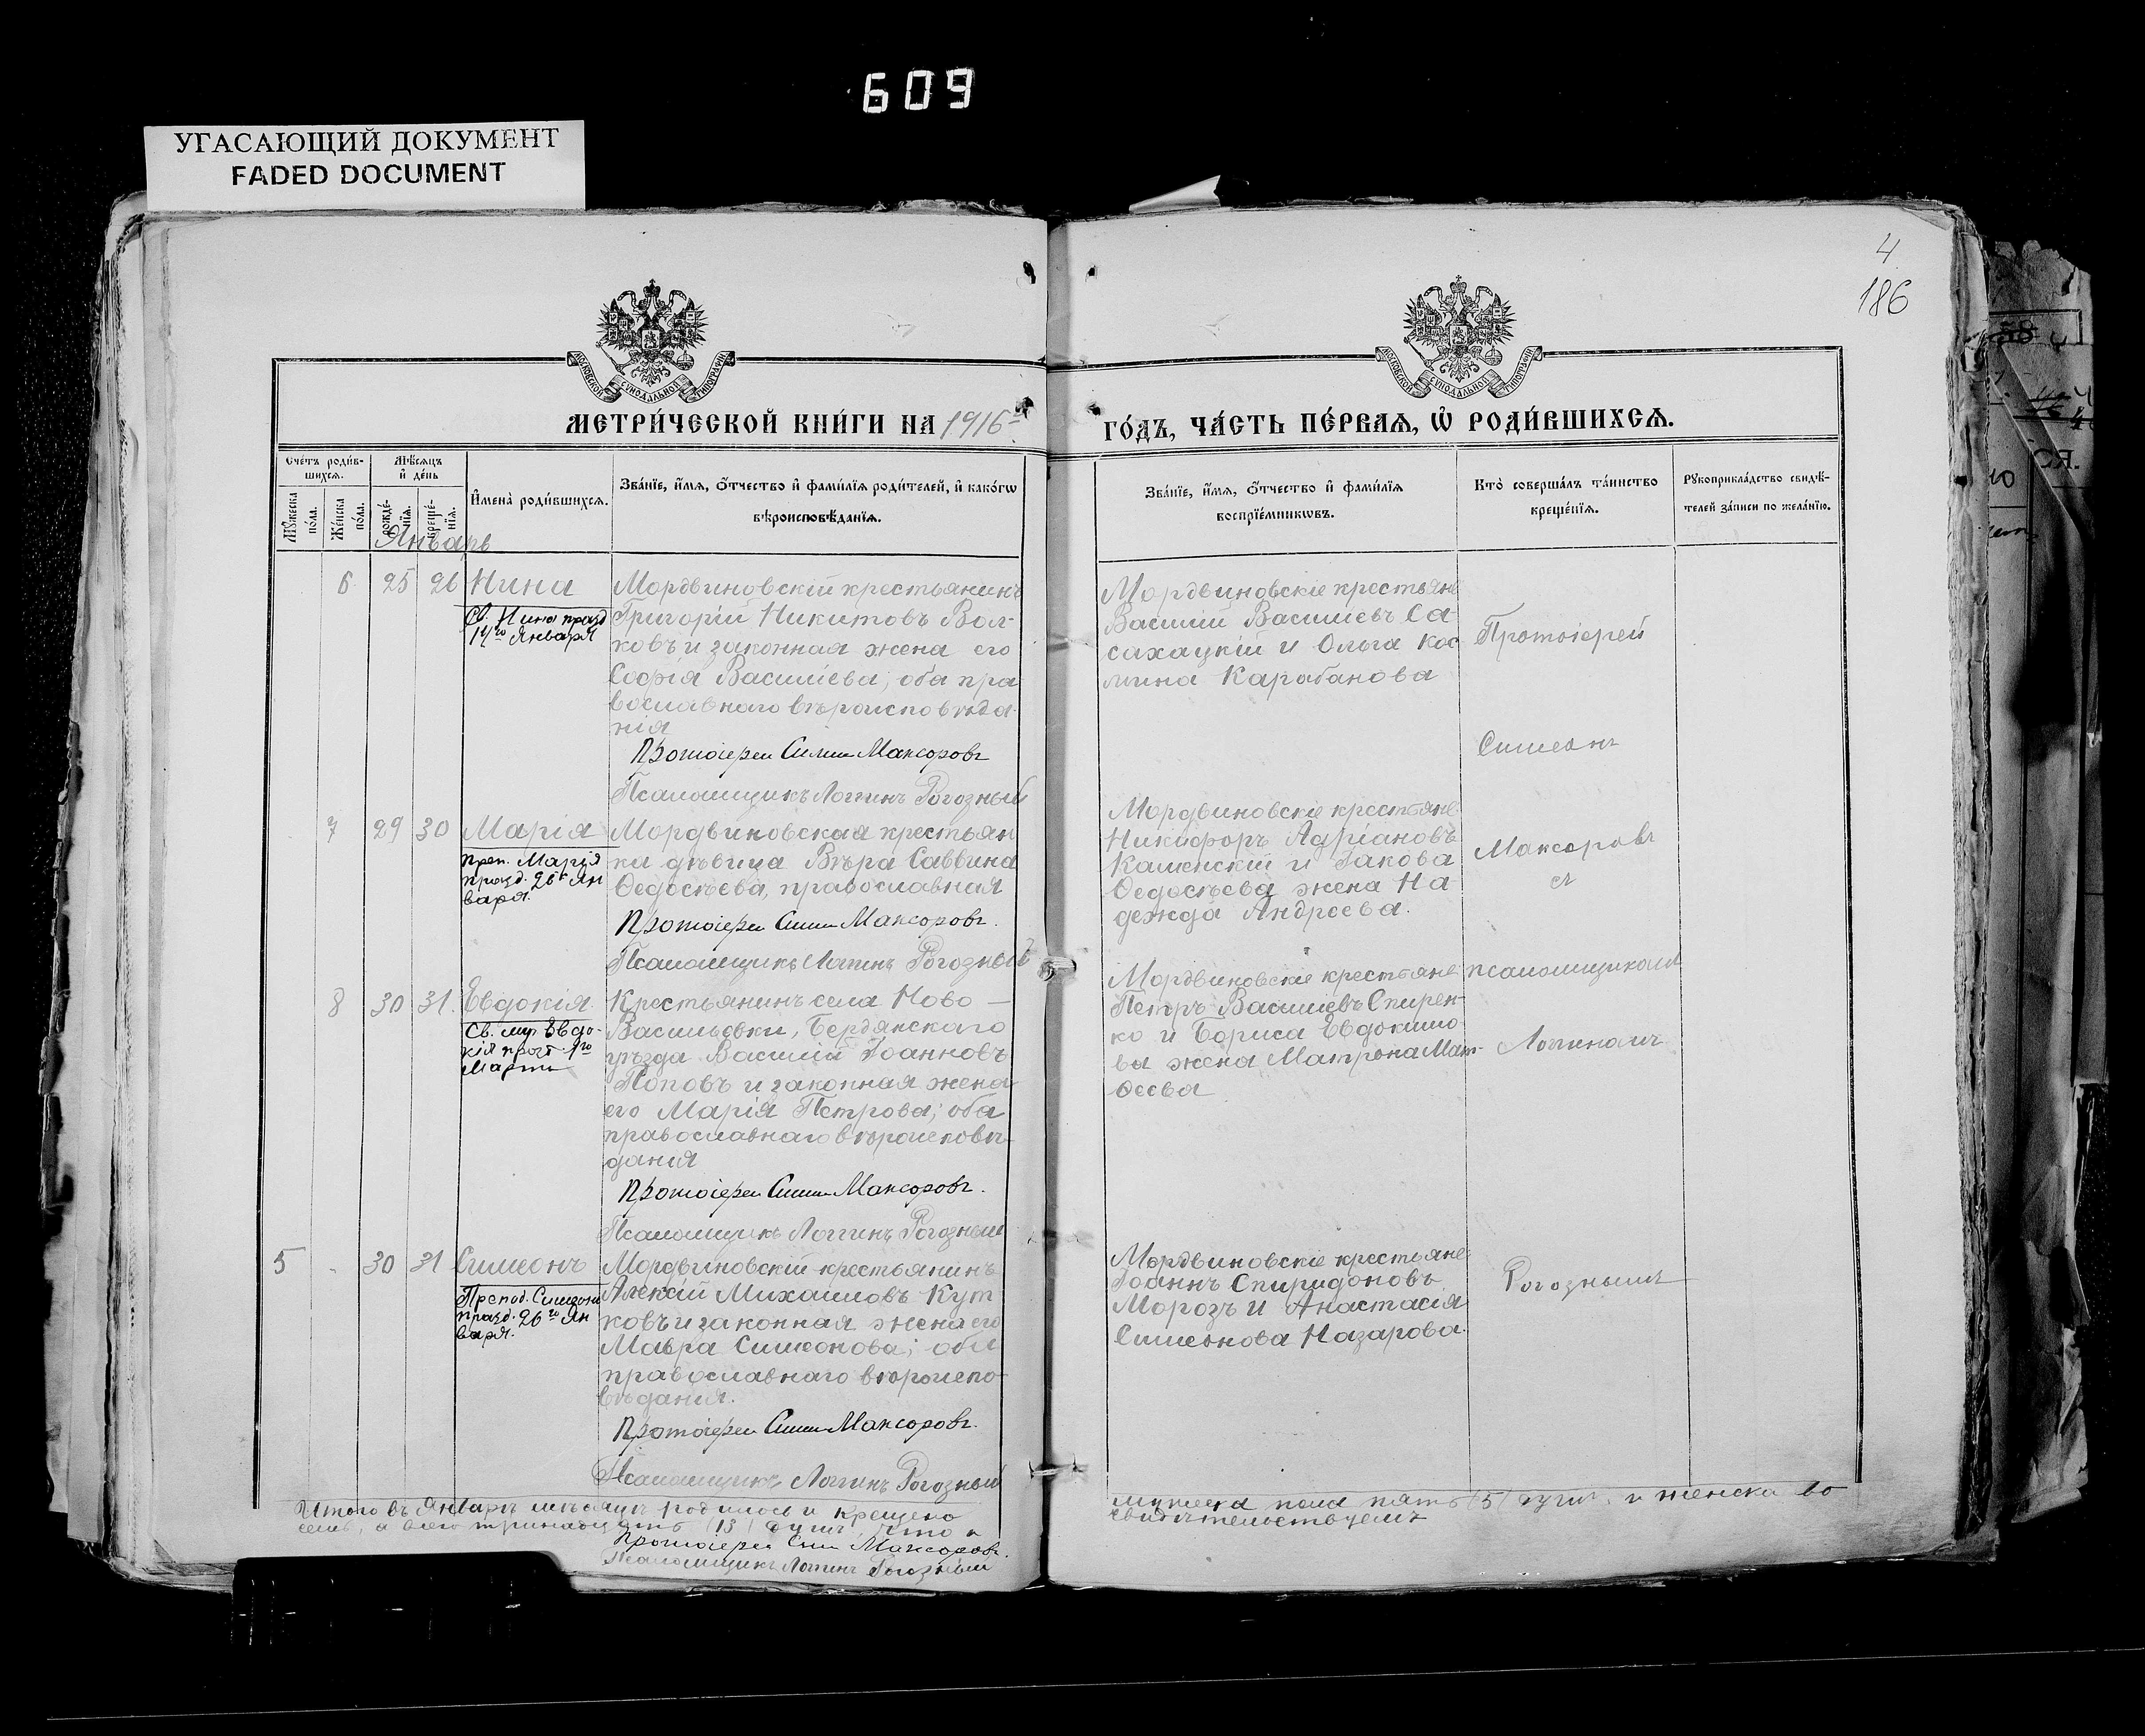 609
УГАСАЮЩИЙ ДОКУМЕНТ
FADED DOCUMENT
4
186
МЕТРИ́ЧЕСКОЙ КНИ́ГИ НА 1916 го́дъ, ча́сть пе́рвая, ѽ роди́вшихсѧ.
Сче́тъ роди́в-
шихсѧ.
Мѣ́сѧцъ
и҆ де́нь
Мꙋ́жеска по́ла.
Же́нска по́ла.
рожде́-
нїѧ.
креще́-
нїѧ.
И҆мена̀ роди́вшихсѧ.
Зва́нїе, и҆́мѧ, ѻ҆́тчество и҆ фами́лїѧ роди́телей, и҆ како́гѡ
вѣроисповѣ́данїѧ.
Зва́нїе, и҆́мѧ, ѻ҆́тчество и҆ фами́лїѧ
воспрїе́мникѡвъ.
Кто̀ соверша́лъ та́инство
креще́нїѧ.
Рꙋкоприкла́дство свидѣ́-
телей за́писи по жела́нїю.
Январь
6 25 26 Нина
Св. Нина празд
14го Января
Мордвиновскій крестьянинъ
Григорій Никитовъ Вол-
ковъ и законная жена его
Софія Василіева, оба пра
вославнаго вѣроисповѣда-
нія
Протоіерей Симеон Максоровъ
Псаломщикъ Логгинъ Рогозный
Мордвиновскіе крестьяне
Василій Василіевъ Са-
сахацкій и Ольга Кос
мина Карабанова
Протоіерей
Симеонъ
7 29 30 Марія
преп. Марія
празд. 26го Ян
варя.
Мордвиновская крестьян
ка дѣвица Вѣра Саввина
Ѳедосѣева, православная
Протоіерей Симеон Максоровъ.
Псаломщикъ Логгинъ Рогозный
Мордвиновскіе крестьяне
Никифоръ Адріановъ
Каменскій и Іакова
Ѳедосѣева жена На
дежда Андреева.
Максоровъ
съ
8 30 31. Евдокія
Св. муч. Евдо-
кія празд. 1го
Марта
Крестьянинъ села Ново —
Васильевки, Бердянскаго
уѣзда Василій Іоанновъ
Поповъ и законная жена
его Марія Петрова; оба
православнаго вѣроисповѣ-
данія
Протоіерей Симеон Максоровъ.
Псаломщикъ Логгинъ Рогозный
Мордвиновскіе крестьяне
Петръ Василіевъ Спирен-
ко и Бориса Евдокимо-
ва жена Матрона Мат-
ѳеева
псаломщикомъ
Логгиномъ
5 - 30 31 Симеонъ
Препод. Симеона
празд. 26го Ян
варя.
Мордвиновскій крестьянинъ
Алексій Михаиловъ Кут
ковъ и законная жена его
Мавра Симеонова; оба
православнаго вѣроиспо-
вѣданія.
Протоіерей Симеон Максоровъ.
Псаломщикъ Логгинъ Рогозный
Мордвиновскіе крестьяне
Іоаннъ Спиридоновъ
Морозъ и Анастасія
Симеонова Назарова.
Рогознымъ
Итого въ Январѣ мѣсяцѣ родилось и крещено мужеска пола пять (5) душъ, и женска во
семь, а всего тринадцать (13) душъ, что и свидѣтельствуемъ
Протоіерей Симеон Максоровъ.
Псаломщикъ Логгинъ Рогозный